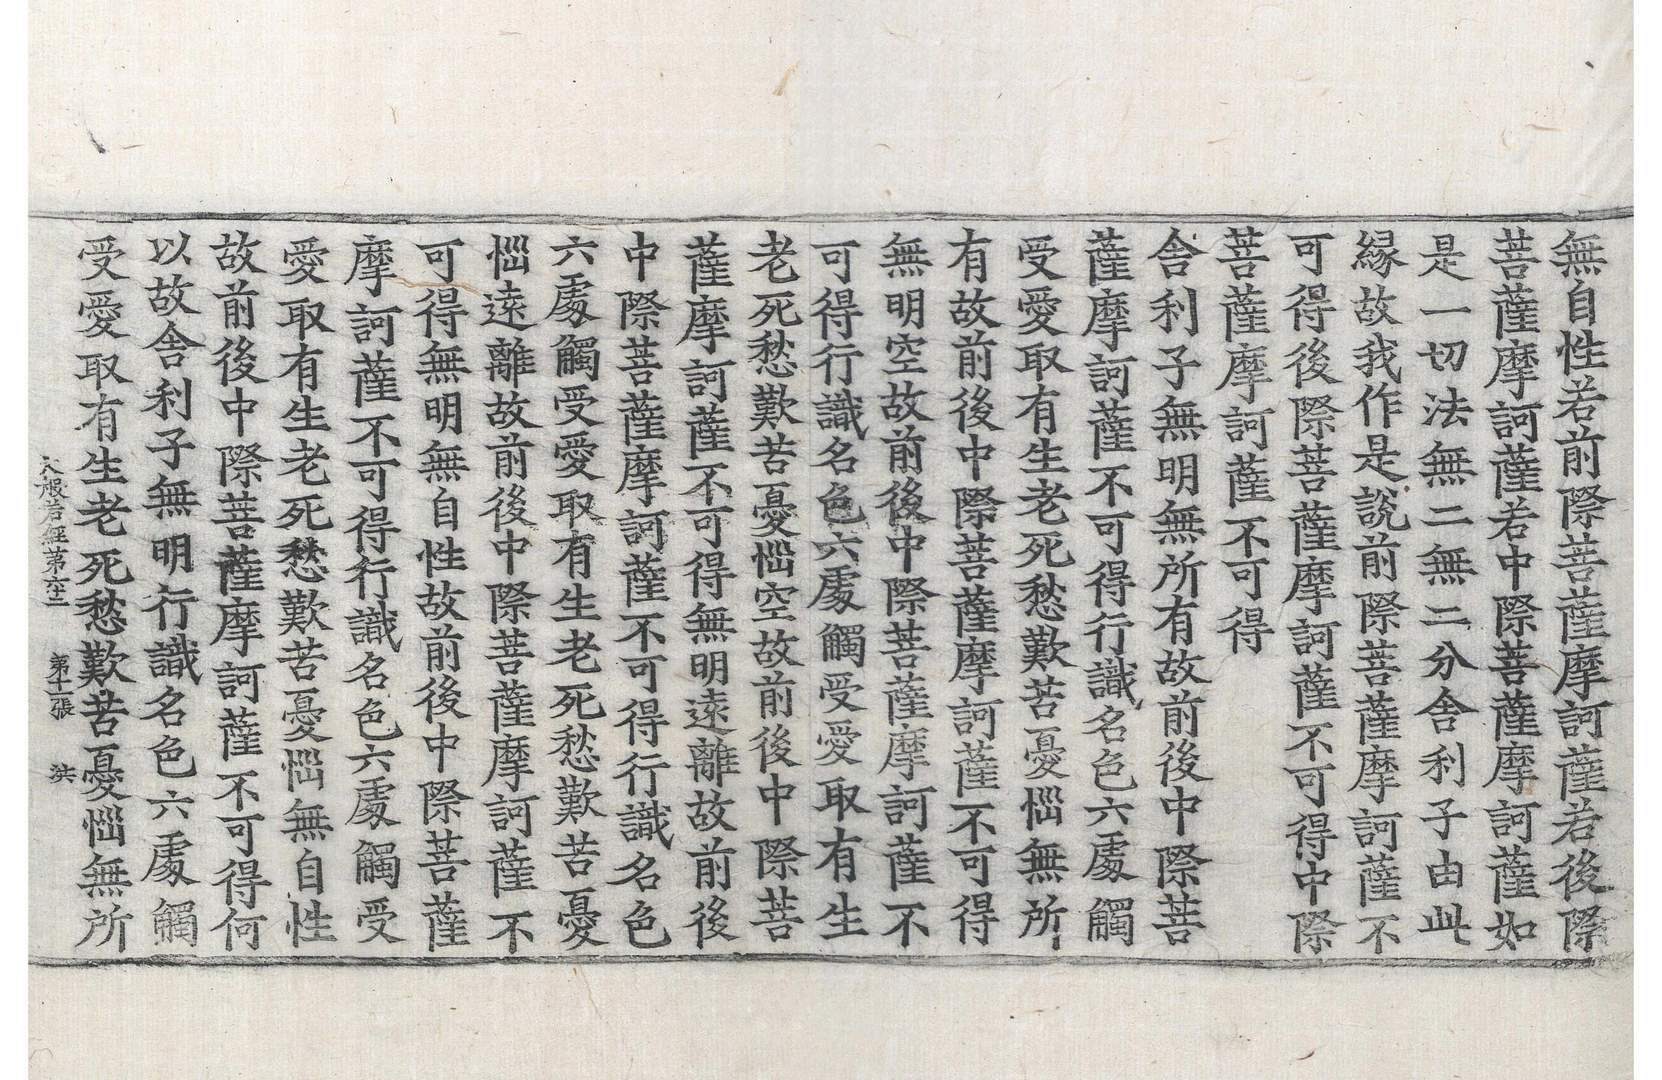 無自性若前際菩薩摩訶薩若後際
菩薩摩訶薩若中際菩薩摩訶薩如
是一切法無二無二分舎利子由此
緣故我作是說前際菩薩摩訶薩不
可得後際菩薩摩訶薩不可得中際
菩薩摩訶薩不可得
舎利子無明無所有故前後中際菩
薩摩訶薩不可得行識名色六處觸
受愛取有生老死愁歎苦憂惱無所
有故前後中際菩薩摩訶薩不可得
無明空故前後中際菩薩摩訶薩不
可得行識名色六處觸受愛取有生
老死愁歎苦憂惱空故前後中際菩
薩摩訶薩不可得無明遠離故前後
中際菩薩摩訶薩不可得行識名色
六處觸受愛取有生老死愁歎苦憂
惱遠離故前後中際菩薩摩訶薩不
可得無明無自性故前後中際菩薩
摩訶薩不可得行識名色六處觸受
愛取有生老死愁歎苦憂惱無自性
故前後中際菩薩摩訶薩不可得何
以故舎利子無明行識名色六處觸
受愛取有生老死愁歎苦憂惱無所
大般若經第六十二 第十二張 洪